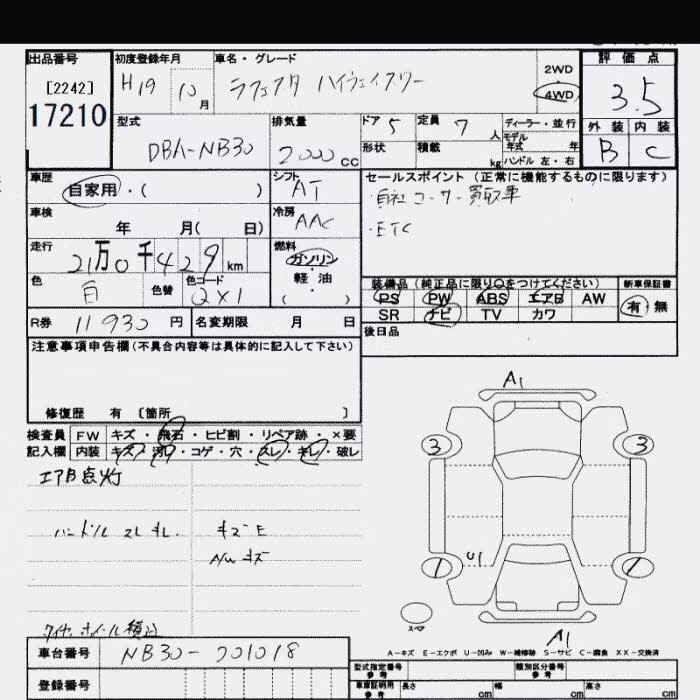 出品番号 初度登録年月 車名・グレード 評価点
[2242] H19 10月 ラフェスタ ハイウェイスター 2WD 4WD 3.5
17210
型式 排気量 ドア 5 定員 7人 ディーラー・並行 外装 内装
DBA-NB30 2000cc 形状 積載 kg モデル年式 年 B C
ハンドル 左・右
車歴 シフト セールスポイント(正常に機能するものに限ります)
自家用・( ) AT ・自社ユーザー買取車
車検 冷房 ・ETC
年 月( 日) AAC
走行 燃料
21万0千429km ガソリン・軽油 装備品(純正品に限り○をつけてください) 新車保証書
色 色替 色コード ( ) PS PW ABS エアB AW 有・無
白 QX1 SR ナビ TV カワ
R券 11930円 名変期限 月 日 後日品
注意事項申告欄(不具合内容等は具体的に記入して下さい)
修復歴 有 〔箇所 〕
A1
検査員 FW キズ・飛石・ヒビ割・リペア跡・×要
記入欄 内装 キズ・汚レ・コゲ・穴・スレ・キレ・破レ
3 3
エアB点灯
ハンドル スレ キレ キズ E
A/U キズ
U1
1 1
タイヤ、ホイール積込
スペア
A1
A-キズ E-エクボ U-凹み W-補修跡 S-サビ C-腐食 XX-交換済
車台番号 NB30-201018
型式指定番号 参考 類別区分番号 参考
登録番号 車庫証明用 参考 長さ cm 幅 cm 高さ cm